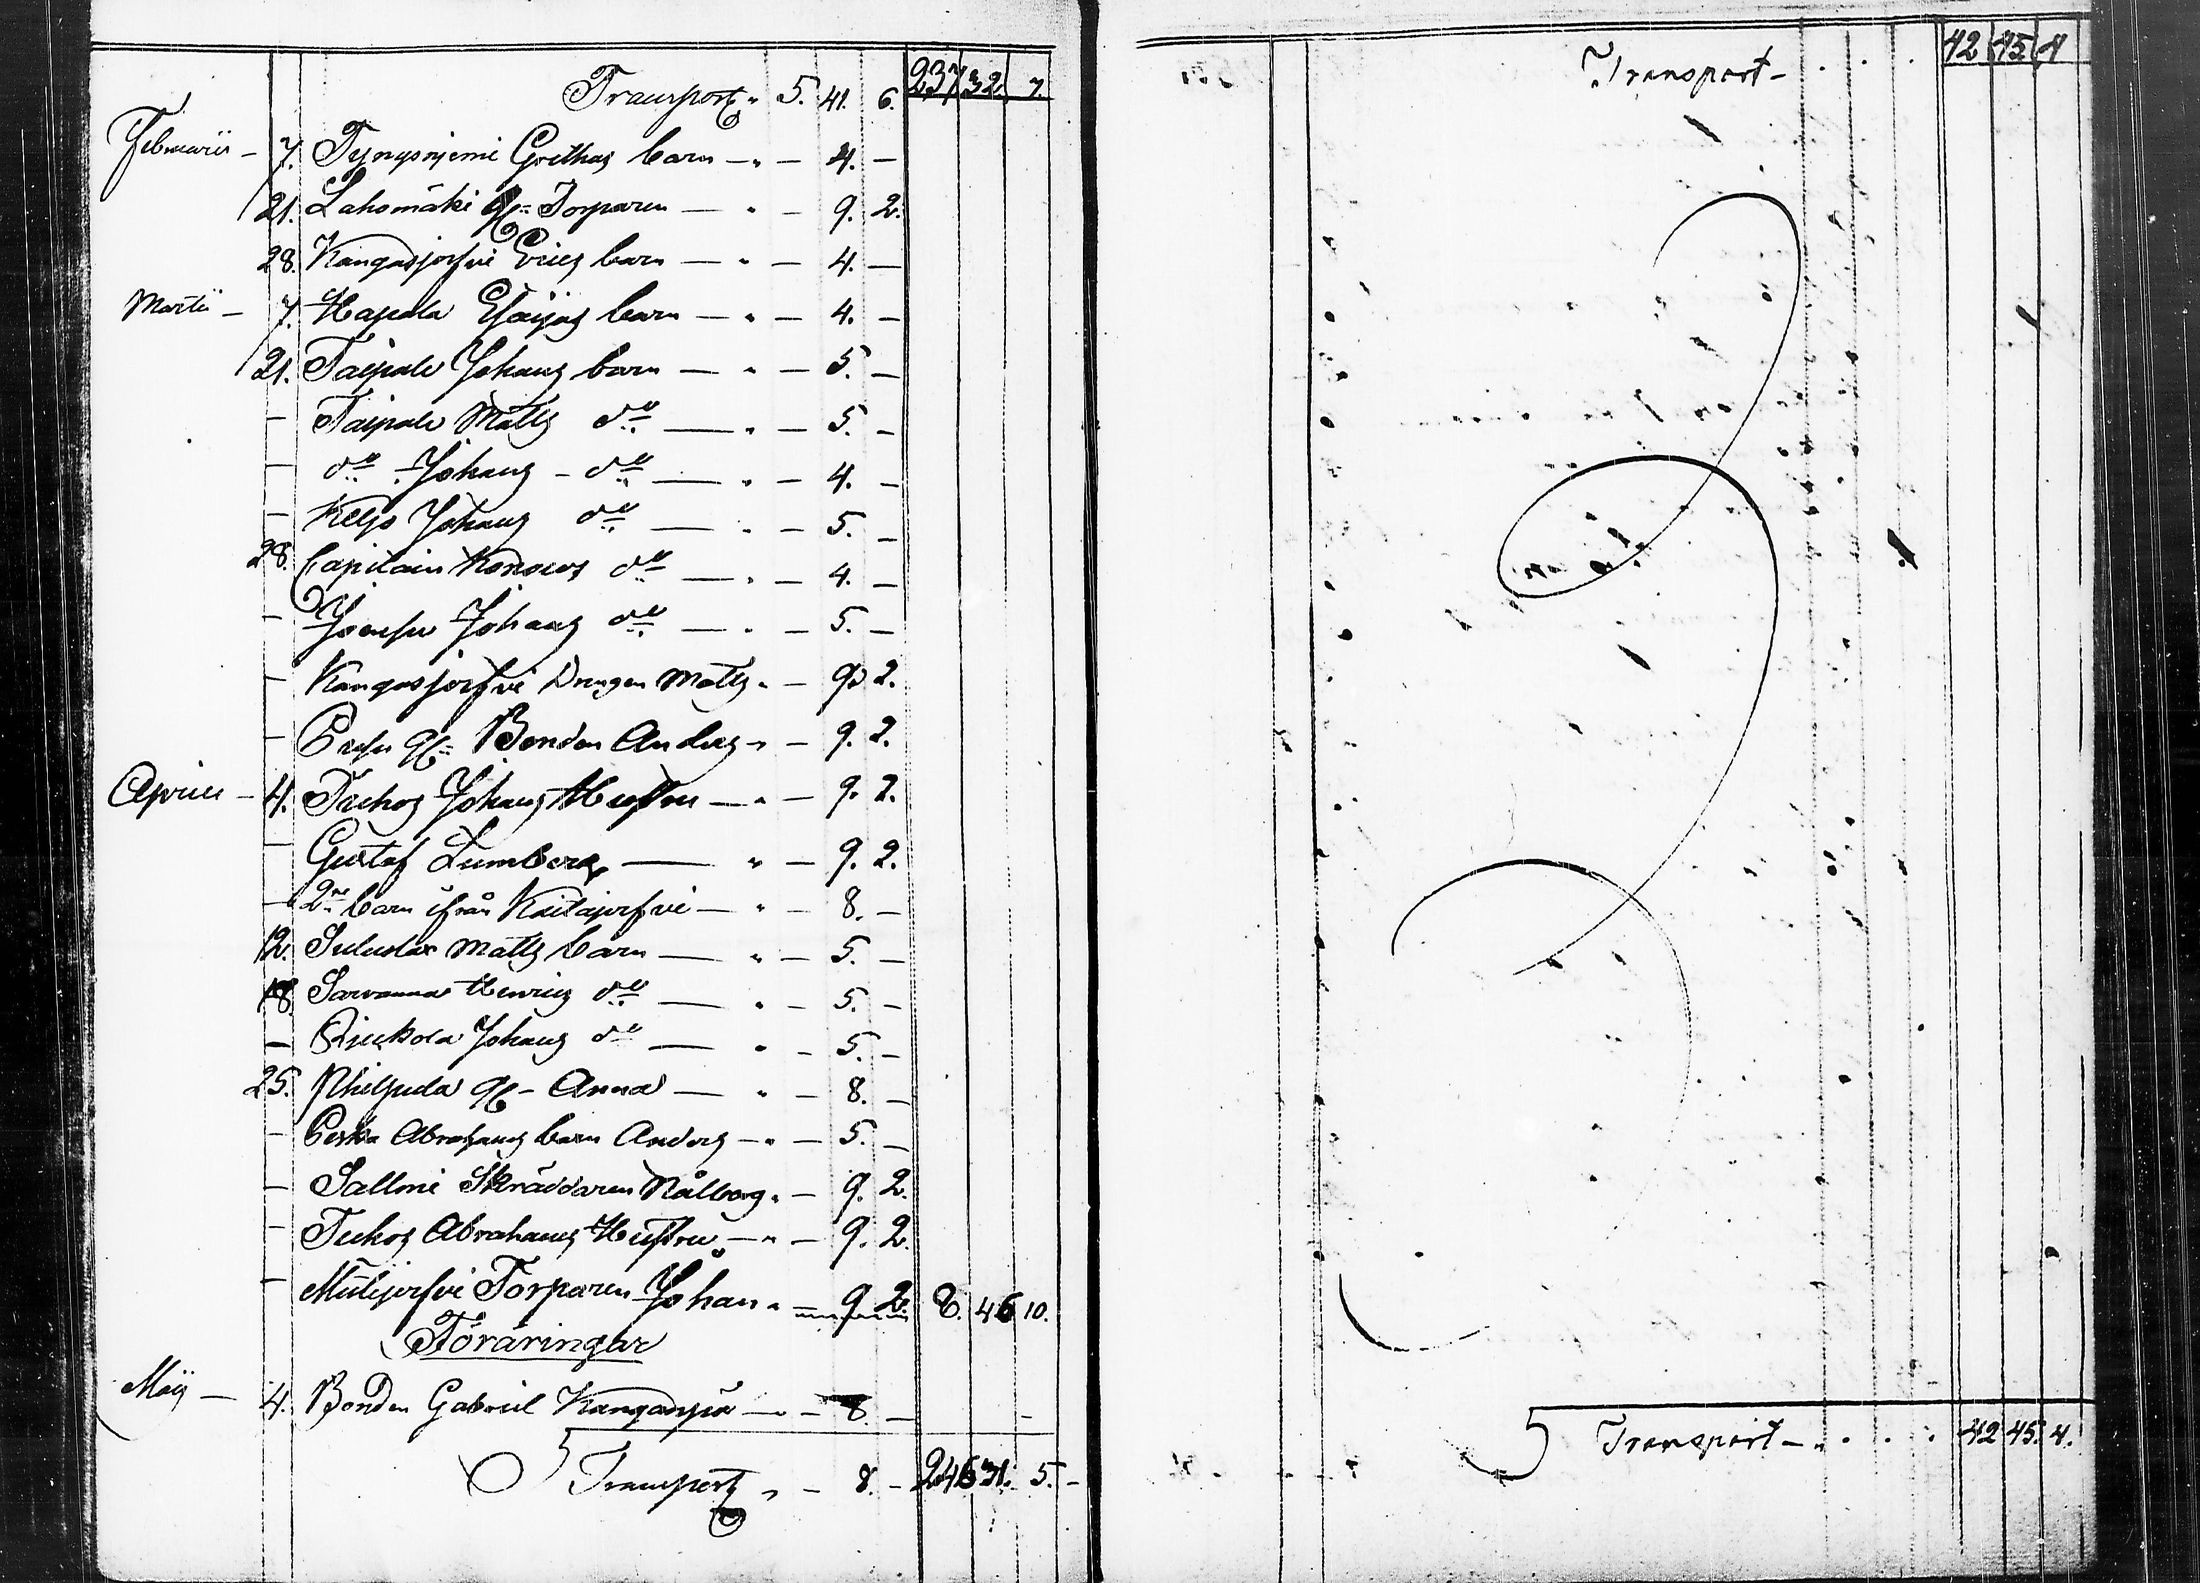 Transport " 5. 41. 6. 237 32. 7.
Februarii – 7. Tyngsniemi Grethas barn – " – 4. –
21. Lahomäki Gl: Torparen – " – 9. 2.
28. Kangasjerfvi Erics barn – " – 4. –
Martii – 7. Hapala Esaijas barn – " – 4. –
21. Taipale Johans barn – " – 5. –
– Taipale Matts do – " – 5. –
– do Johans – do – " – 4. –
– Keljo Johans do – " – 5. –
28. Capitain do – " – 4. –
– Johans do – " – 5. –
– Kangasjerfvi Drengen Matts " – 9. 2.
– Gl: Bonden Anders " – 9. 2.
Aprilis – 4. Tuhos Johans Hustru – " – 9. 2.
– Gustaf Lumberg – " – 9. 2.
– 2ne barn ifrån Kaitajerfvi – " – 8. –
12. Matts barn – " – 5. –
18. Henrics do – " – 5. –
– Johans do – " – 5. –
25. Philpula Gl– Anna – " – 8. –
– Perka Abrahams barn Anders – " – 5. –
– Sallmi Skräddaren Nålberg " – 9. 2.
– Tuhos Abrahams Hustru – " – 9. 2.
– Torparen Johan " – 9. 2. 8. 46 10.
Föräringar
Maij – 4. Bonden Gabriel – " – 8. –
Transport " – 8. – 246 31. 5. –
Transport – . . . 42 45 4
Transport – " . . . 42 45. 4.